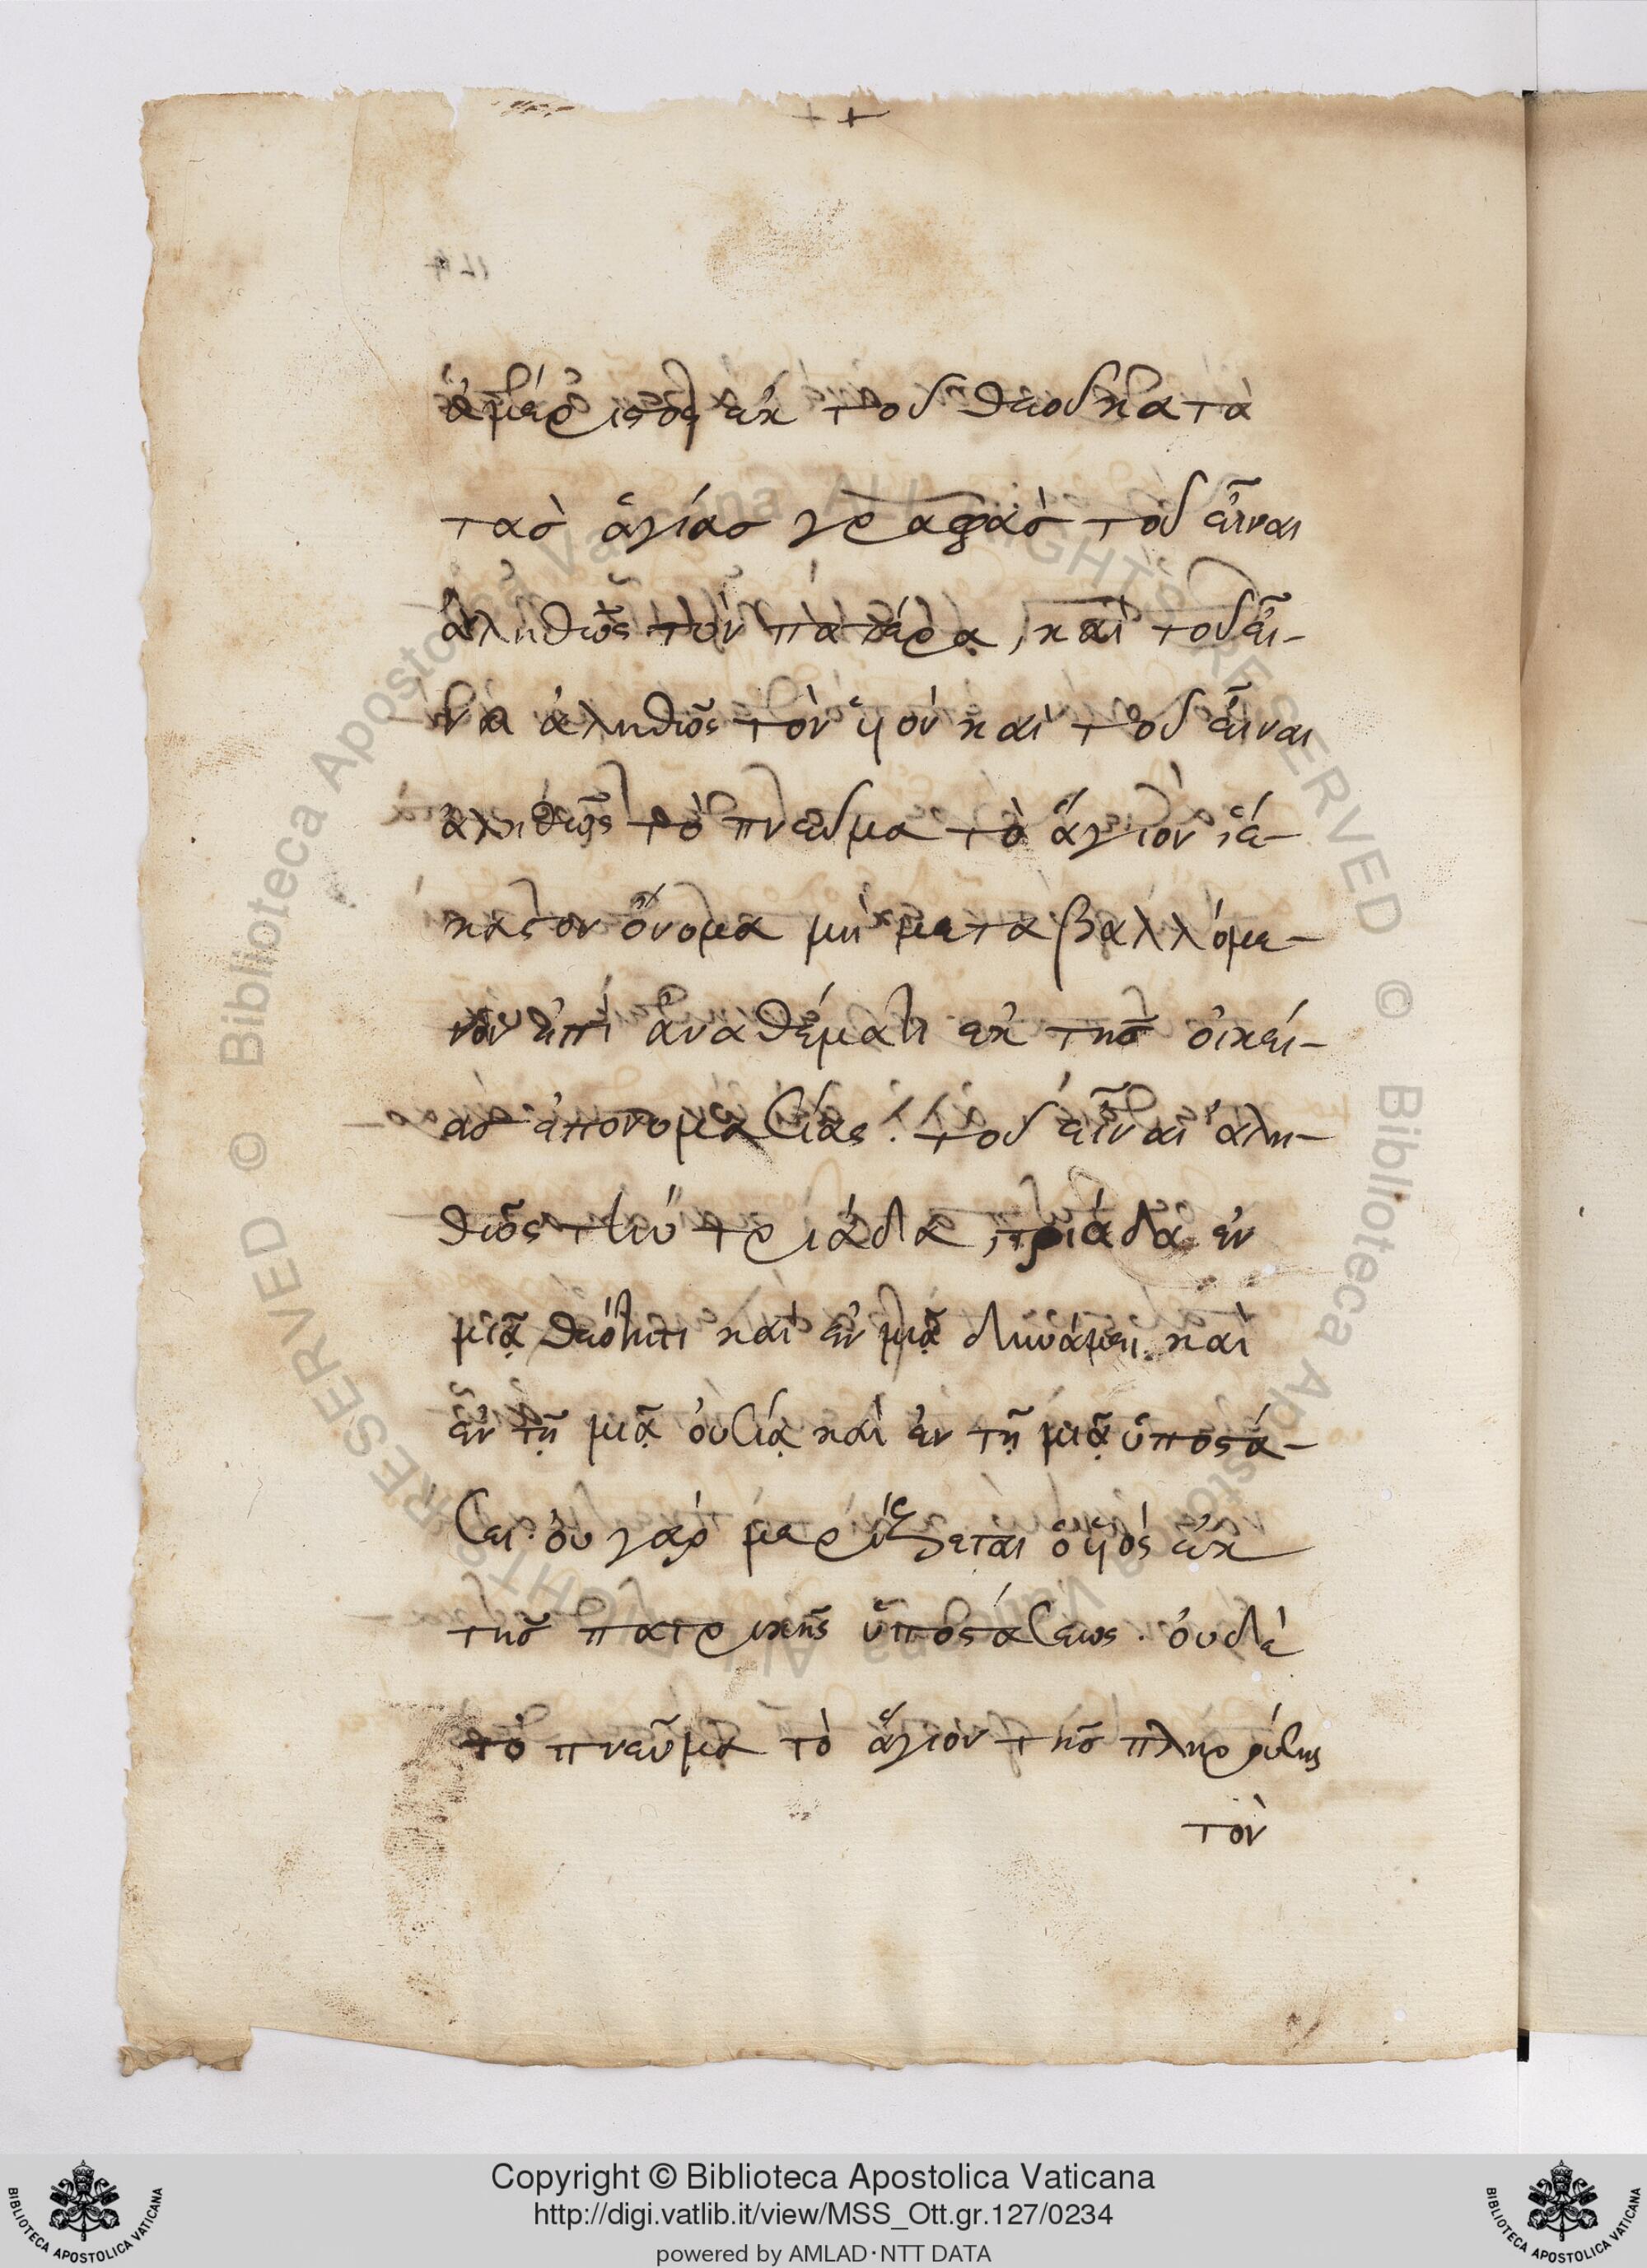 ἀμέριστος ἐκ τοῦ θεοῦ κατὰ
τὰς ἁγίας γραφὰς τοῦ εἶναι
ἀληθῶς τὸν πατέρα, καὶ τοῦ εἶ-
ναι ἀληθῶς τὸν υἱὸν καὶ τοῦ εἶναι
ἀληθῶς τὸ πνεῦμα τὸ ἅγιον, ἕ-
καστον ὄνομα μὴ μεταβαλλόμε-
νον ἐπὶ ἀναθέματι ἐκ τῆς οἰκεί-
ας ἐπονομασίας. τοῦ εἶναι ἀλη-
θῶς τὴν τριάδα, τριάδα ἐν
μιᾷ θεότητι καὶ ἐν μιᾷ δυνάμει. καὶ
ἐν τῇ μιᾷ οὐσίᾳ καὶ ἐν τῇ μιᾷ ὑποστά-
σει. οὐ γὰρ μερίζεται ὁ υἱὸς ἐκ
τῆς πατρικῆς ὑποστάσεως. οὐδὲ
τὸ πνεῦμα τὸ ἅγιον τῆς πληρούσης
τὸν
Copyright © Biblioteca Apostolica Vaticana
http://digi.vatlib.it/view/MSS_Ott.gr.127/0234
powered by AMLAD·NTT DATA
BIBLIOTECA APOSTOLICA VATICANA
BIBLIOTECA APOSTOLICA VATICANA